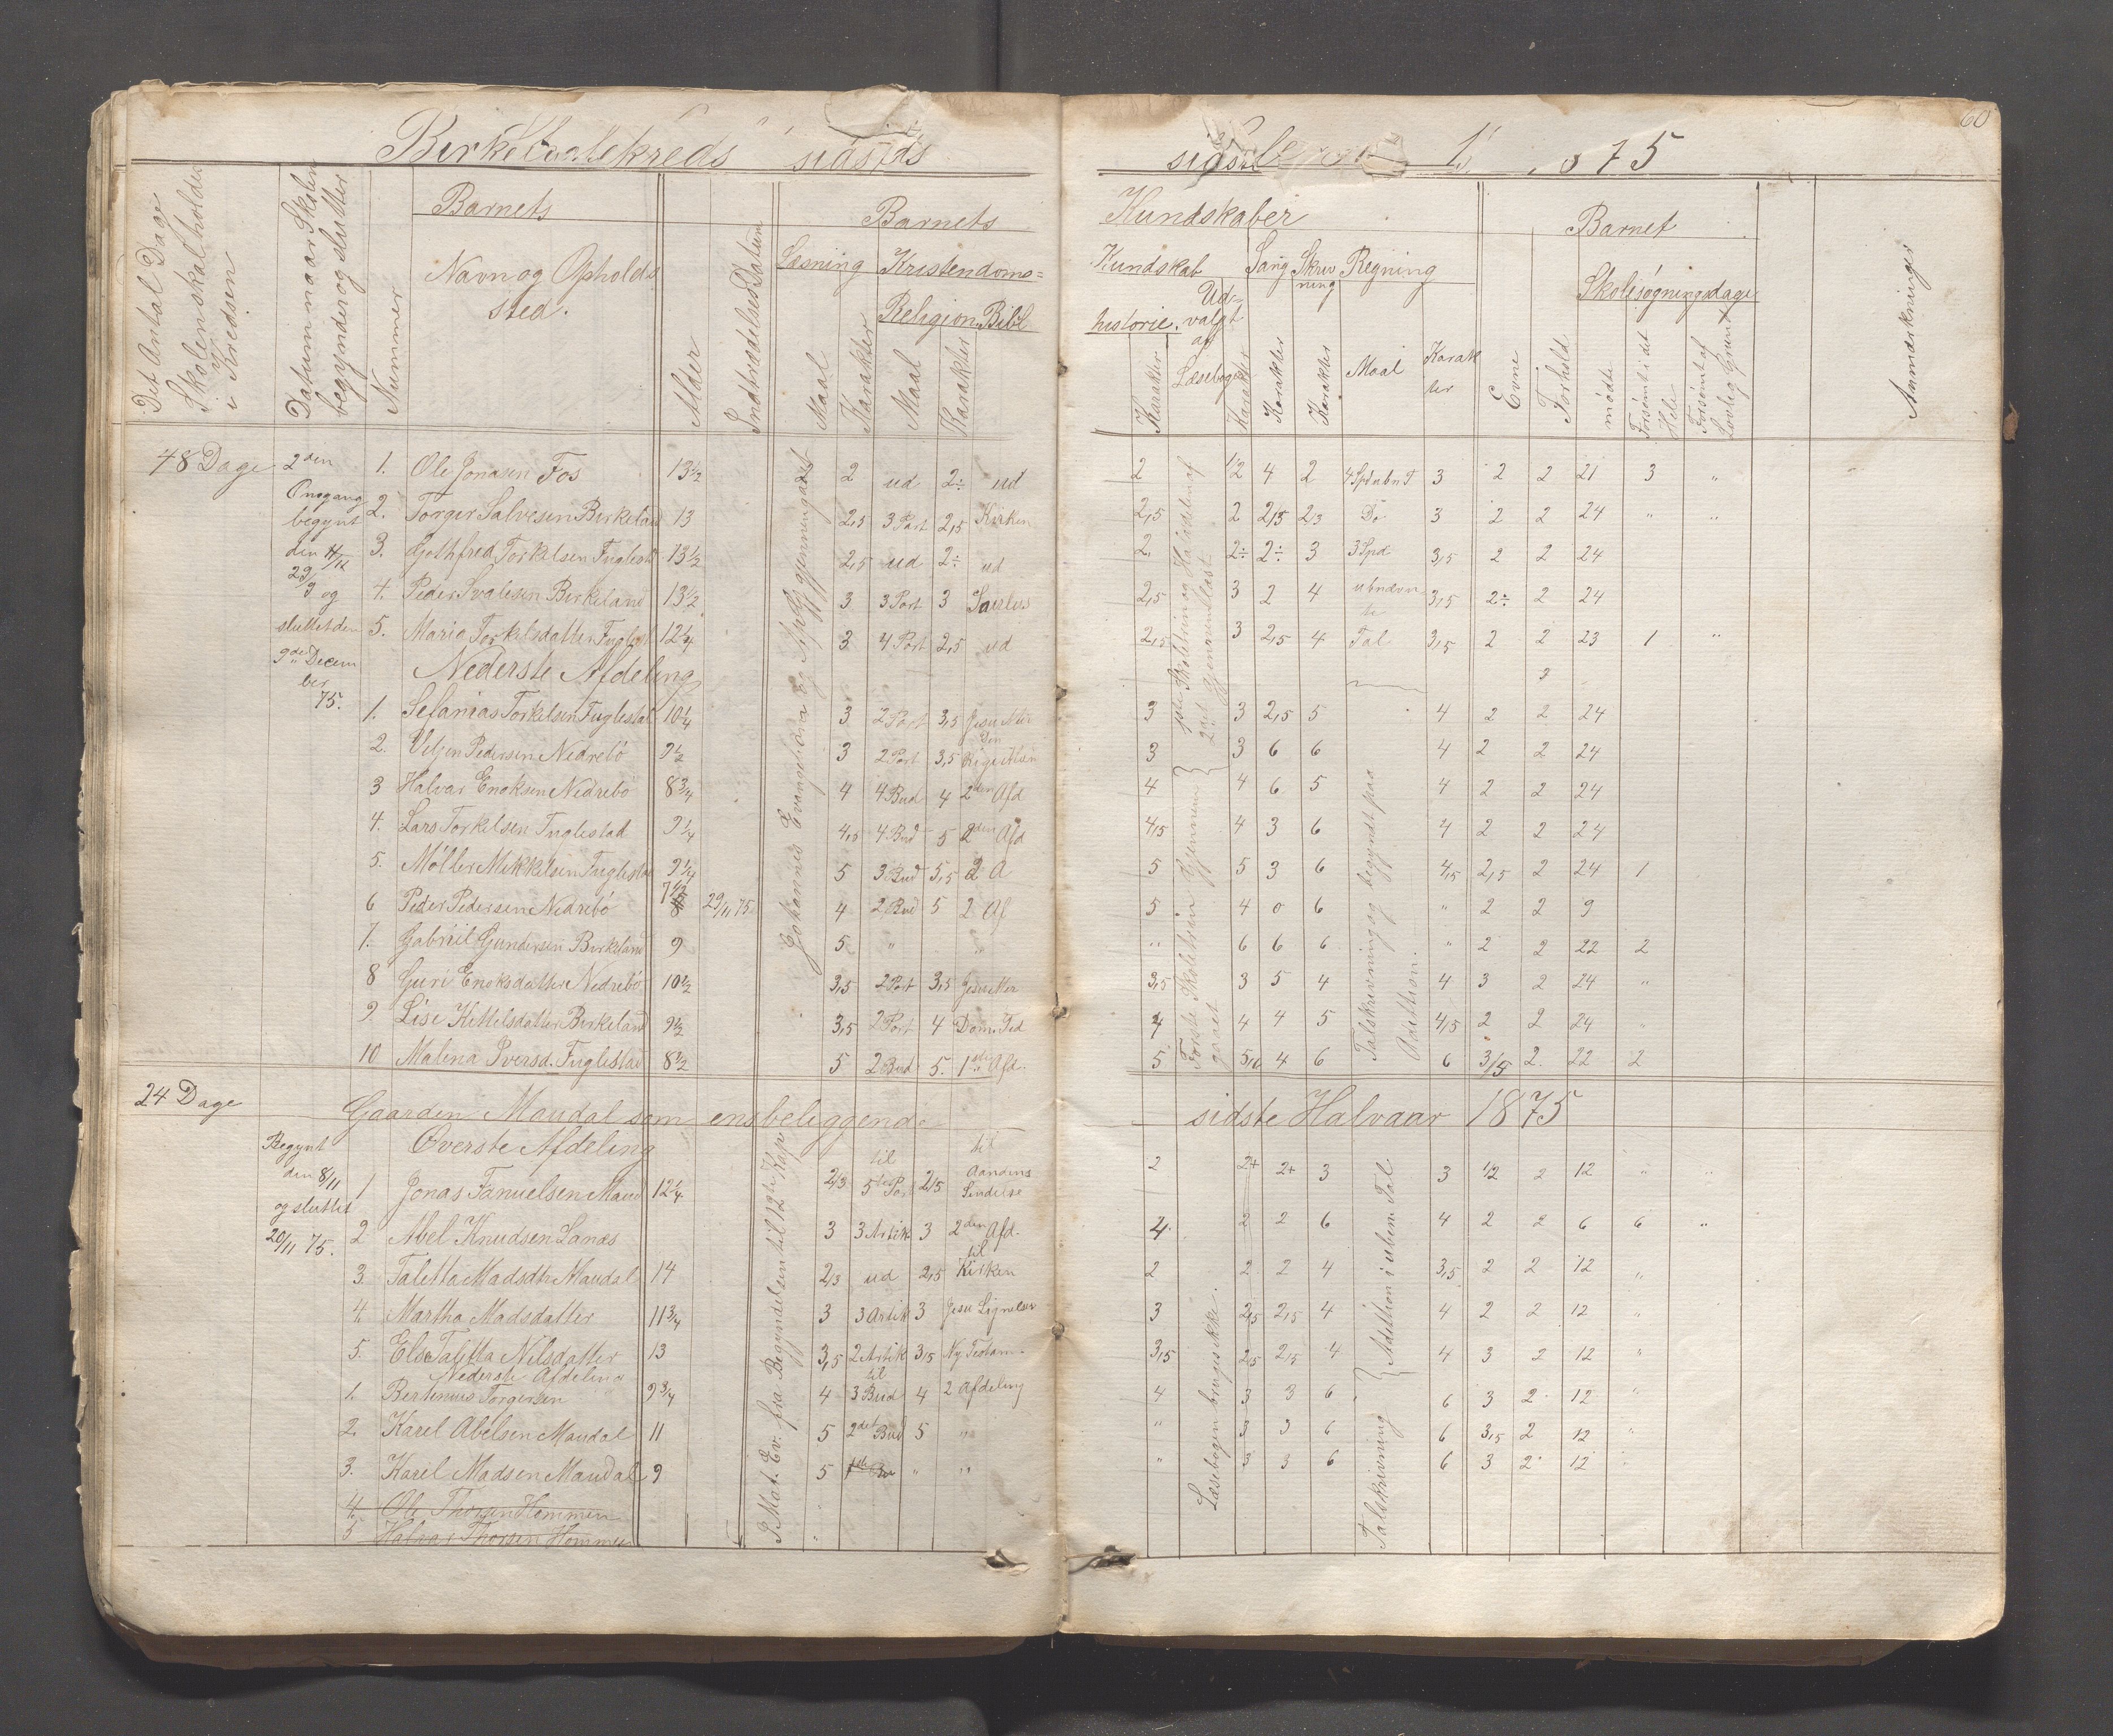 60
Birkelandskreds sidste
1875
Det Antal Dage Skolen skal holdes i Kredsen
Datum naar Skolen begynder og slutter
Nummer
Barnets
Navn og Opholds
sted.
Alder
Indtrædelses Datum
Barnets
Læsning
Kristendoms=
Religion. Bibl
Maal
Karakter
Maal
Karakter
Kundskaber
Kundskab
historie.
Karakter
Ud-
valgt
af
Læsebogen
Karakter
Sang
Karakter
Skriv
ning
Karakter
Regning
Maal
Karak
ter
Barnet
Evne
Forhold
Skolesøgningsdage
mødte
Forsømt i det Hele
Forsømt af Lovlig Grund
Anmærkninger
48 Dage
2den
Omgang
begynt
den 4/11
29/9 og
sluttet den
9de Decem
ber
75.
1. Ole Jonasen Fos 13½ 2 ud 2÷ ud 2 ½ 4 2 3 2 2 21 3 "
2. Torger Salvesen Birkeland 13 2,5 3 Part 2,5 Kirken 2,5 2 2,5 2,3 Do 3 2 2 24 " "
3. Gothfred Torkelsen Fuglestd 13½ 2,5 ud 2÷ ud 2. 2÷ 2÷ 3 3 Spd 3,5 2 2 24
4. Peder Svalesen Birkeland 13½ 3 3 Part 3 2,5 3 2 4 ubnævn
te 3,5 2÷ 2 24
5. Maria Torkelsdatter Fuglest 12¼ 3 4 Part 2,5 ud 2,5 3 2,5 4 Tal 3,5 2 2 23 1 "
Nederste Afdeling
1. Sefanias Torkelsen Fuglestad 10¼ 3 2 Part 3,5 3 3 2,5 5 4 2 2 24
2. Veljen Pedersen Nedrebö 9½ 3 2 Part 3,5 3 3 6 6 4 2 2 24
3 Halvar Enoksen Nedrebö 8¾ 4 4 Bud 4 2den Afd 4 4 6 5 4 2 2 24
4. Lars Torkelsen Fuglestad 9¼ 4,5 4 Bud 5 2den Afd 4,5 4 3 6 4 2 2 24
5. Möller Mikkelsen Fuglestad 9¼ 5 3 Bud 3,5 2 A 5 5 3 6 4,5 2,5 2 24 1
6 Peder Pedersen Nedrebö 7½ 29/11 75 4 2 Bud 5 2 Af 5 4 0 6 " 2 2 9
7. Gabriil Gundersen Birkeland 9 5 " " " 6 6 6 " 2 2 22 2
8 Guri Enoksdatter Nedrebö 10½ 3,5 2 Part 3,5 3,5 3 5 4 4 3 2 24 "
9. Lise Kittelsdatter Birkeland 9½ 3,5 2 Part 4 Dom. Tid 4 4 4 5 4,5 2 2 24 "
10 Malena Iversd. Fuglestad 8½ 5 2 Bud 5. 1ste Afd. 5 4 6 6 3,5 2. 22 2
Johannes Evangelium
Første Skoletrin Gjennem
gaaet
Talskrivning og begyndt paa
Addition.
24 Dage
Gaarden Maudal som ensbeliggende sidste Halvaar 1875
Begynt
den 8/11
og sluttet
20/11 75.
Øverste Afdeling
1 Jonas Fanuelsen Maud 12¼ 2,3 til
5te Part 2,5 til
Aandens
Sendelse 2 2+ 2+ 3 3 ½ 2 12 " "
2 Abel Knudsen Lanes 3 3 Artik 3 2den Afd. 4. 2 2 6 4 2 2 6 6 "
3 Taletta Madsdtr Maudal 14 2,3 ud 2,5 til
Kirken 2 2 2 4 3,5 2 2 12 "
4. Martha Madsdatter 11¾ 3 3 Artik 3 Jesu Lignelser 3 2,5 2,5 4 4 2 2 12 "
5. Else Taletta Nilsdatter 13 3,5 2 Artik 3,5 Ny Testam- 3,5 2,5 2,5 4 4 3 2 12 "
Nederste Afdeling
1. Bertinius Torgersen 9¾ 4 til
3 Bud 4 2 Afdeling 4 3 3 6 6 3 2 12 "
2. Karel Abelsen Maudal 11 5 2det Bud 5 " " 3 3 6 6 3,5 2 12 "
3. Karel Madsen Maudal 9 5 " " " 3 3 6 6 3 2 12
4. Ole Thorsen Hommen
5 Halvar Thorsen Hommen
P Mat. Ev. fra Begyndelsen til 12te Kap.
Læsebogen bruges ikke.
Addition i ubn. Tal
Talskrivning